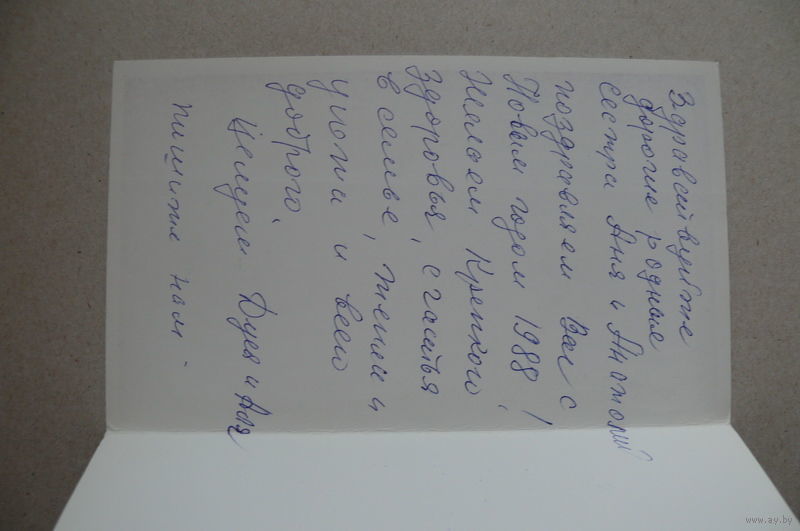 Здравствуйте
дорогие родные
сестра Аня и Анатолий
поздравляем Вас с
Новым годом 1988!
Желаем Крепкого
Здоровья, счастья
в семье, тепла и
уюта и всего
доброго.
Целуем Дуся и Аня
пишите нам.
www.ay.by